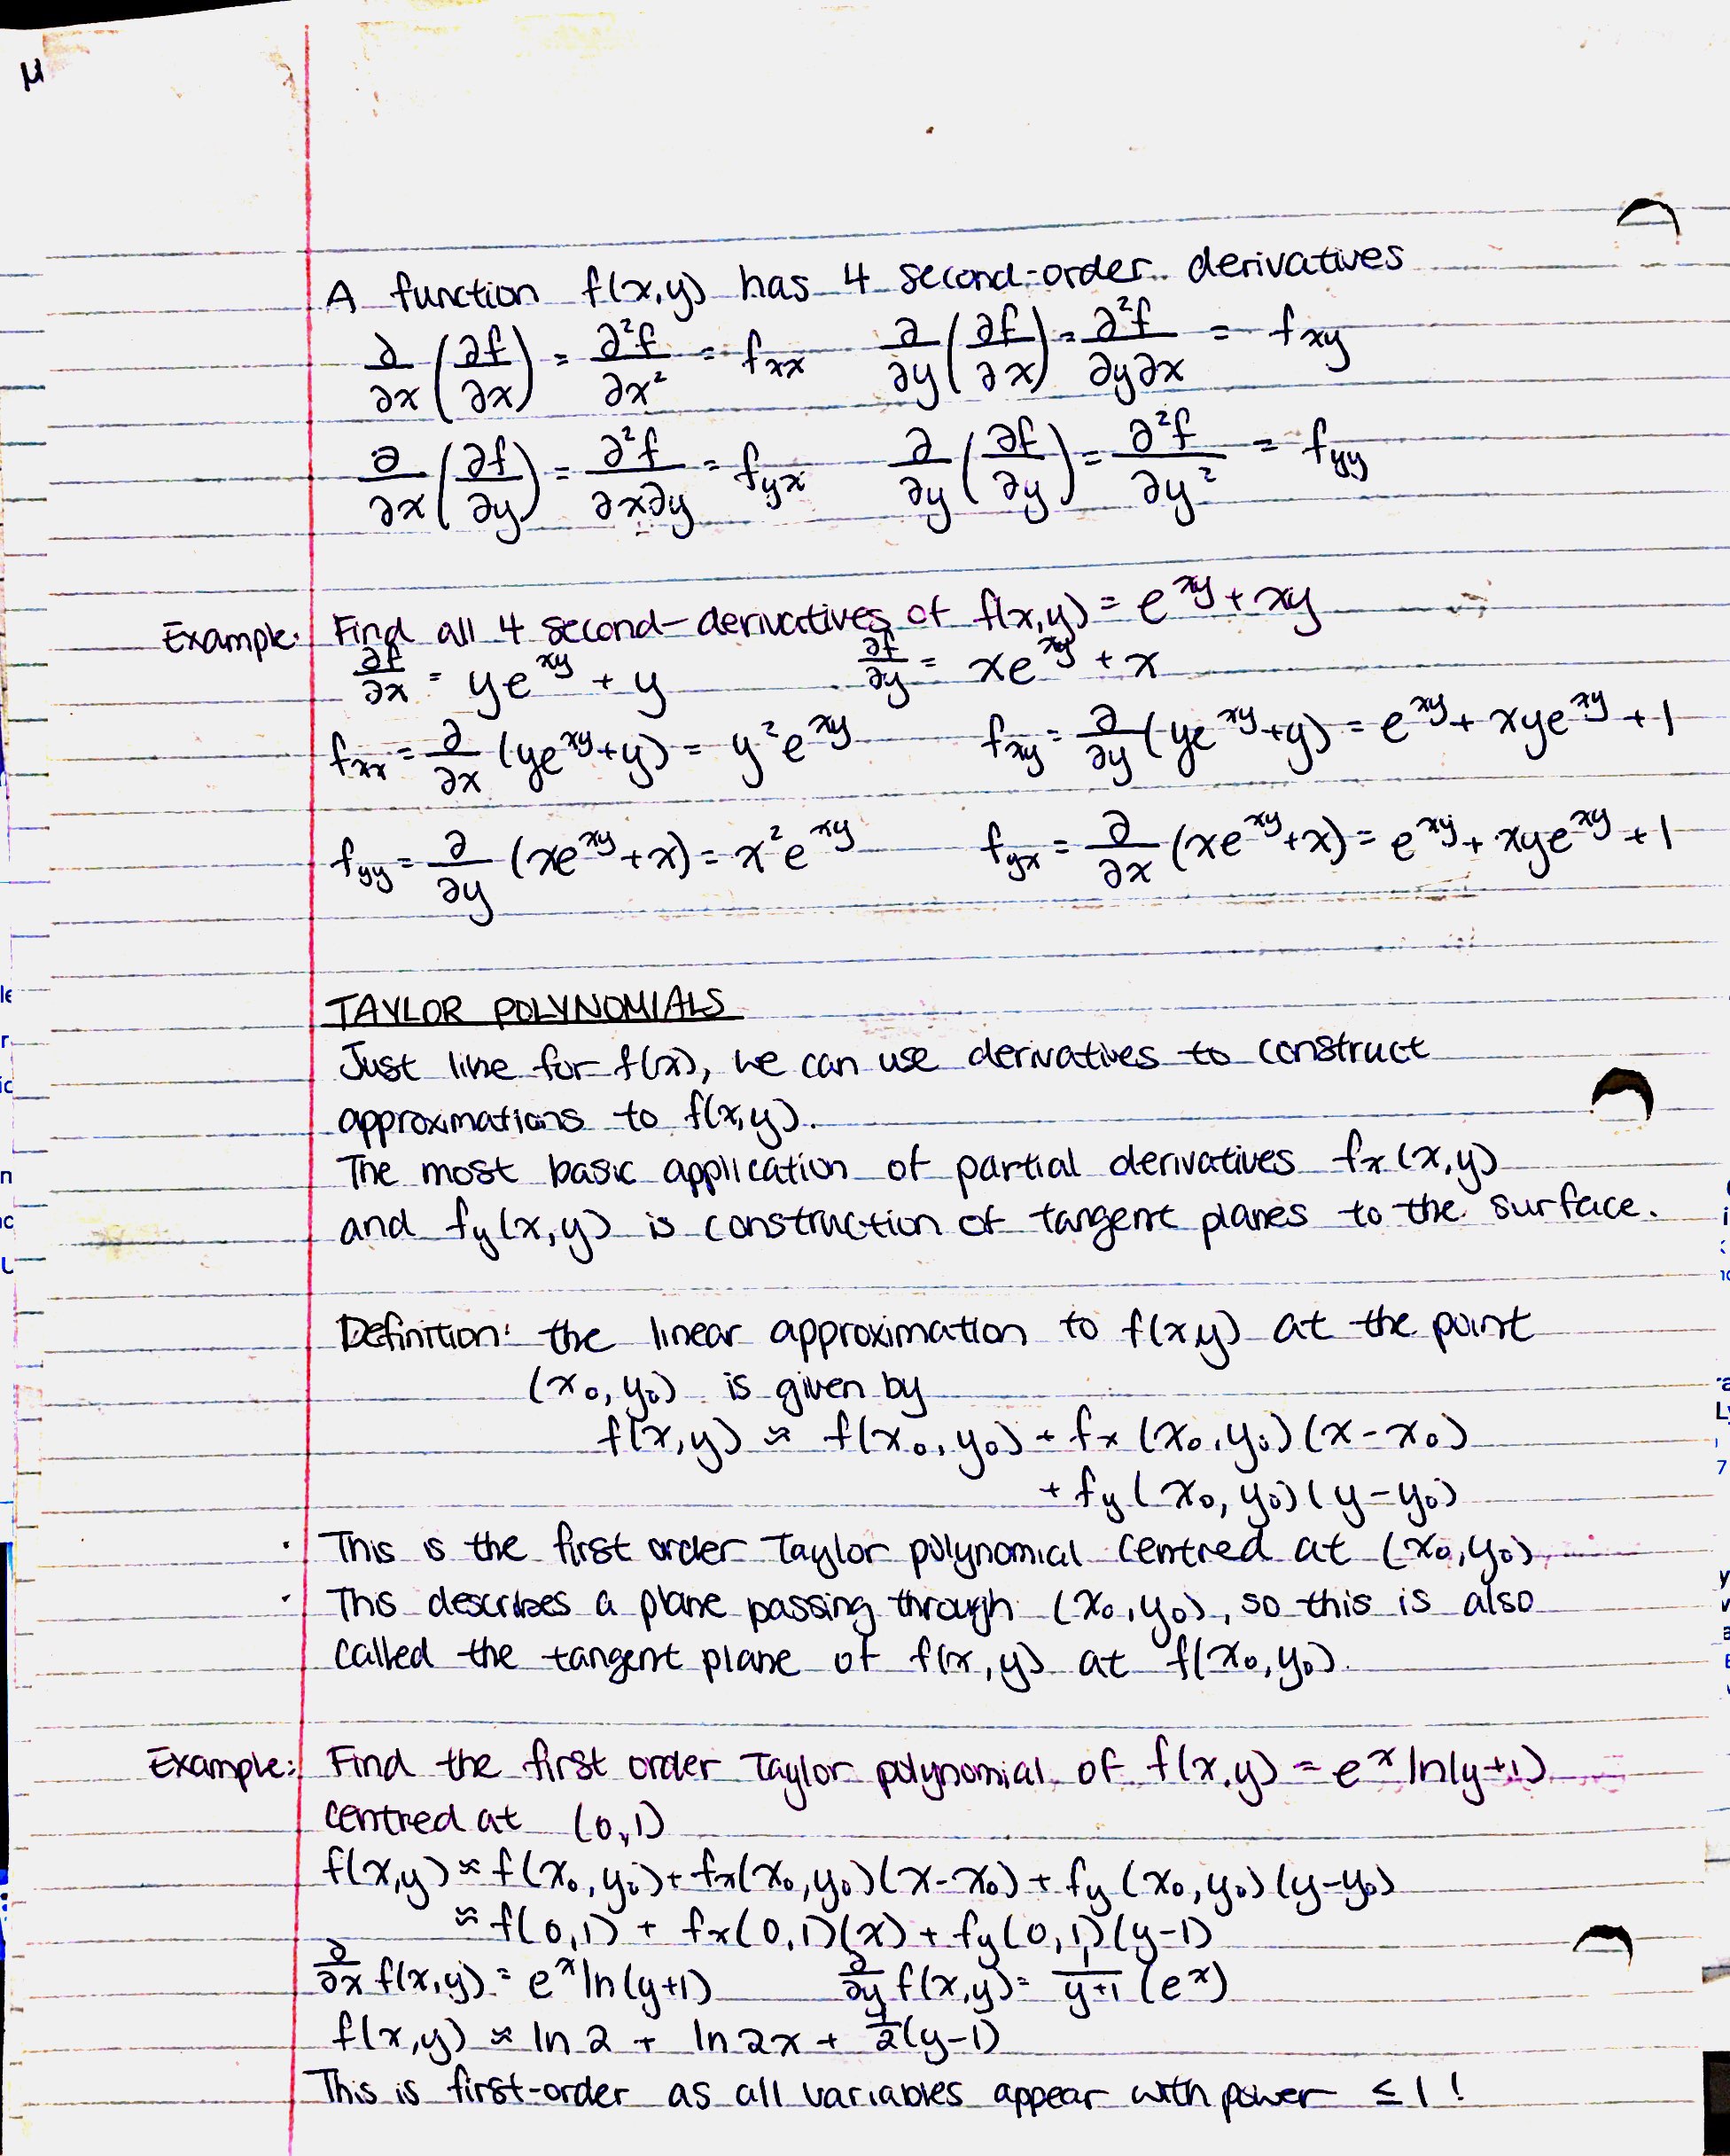 A function f(x,y) has 4 second-order derivatives
∂/∂x (∂f/∂x) = ∂²f/∂x² = fxx ∂/∂y (∂f/∂x) = ∂²f/∂y∂x = fxy
∂/∂x (∂f/∂y) = ∂²f/∂x∂y = fyx ∂/∂y (∂f/∂y) = ∂²f/∂y² = fyy
Example: Find all 4 second-derivatives of f(x,y) = e^xy + xy
∂f/∂x = ye^xy + y ∂f/∂y = xe^xy + x
fxx = ∂/∂x (ye^xy + y) = y²e^xy fxy = ∂/∂y (ye^xy + y) = e^xy + xye^xy + 1
fyy = ∂/∂y (xe^xy + x) = x²e^xy fyx = ∂/∂x (xe^xy + x) = e^xy + xye^xy + 1
TAYLOR POLYNOMIALS
Just like for f(x), we can use derivatives to construct
approximations to f(x,y).
The most basic application of partial derivatives fx(x,y)
and fy(x,y) is construction of tangent planes to the surface.
Definition: the linear approximation to f(x,y) at the point
(x₀, y₀) is given by
f(x,y) ≈ f(x₀, y₀) + fx (x₀, y₀)(x - x₀)
+ fy (x₀, y₀)(y - y₀)
· This is the first order Taylor polynomial centred at (x₀, y₀)
· This describes a plane passing through (x₀, y₀), so this is also
called the tangent plane of f(x,y) at f(x₀, y₀).
Example: Find the first order Taylor polynomial of f(x,y) = e^x ln(y+1)
centred at (0,1)
f(x,y) ≈ f(x₀, y₀) + fx(x₀, y₀)(x - x₀) + fy (x₀, y₀)(y - y₀)
≈ f(0,1) + fx(0,1)(x) + fy(0,1)(y-1)
∂/∂x f(x,y) = e^x ln(y+1) ∂/∂y f(x,y) = 1/(y+1) (e^x)
f(x,y) ≈ ln 2 + ln 2x + 1/2(y-1)
This is first-order as all variables appear with power ≤ 1!